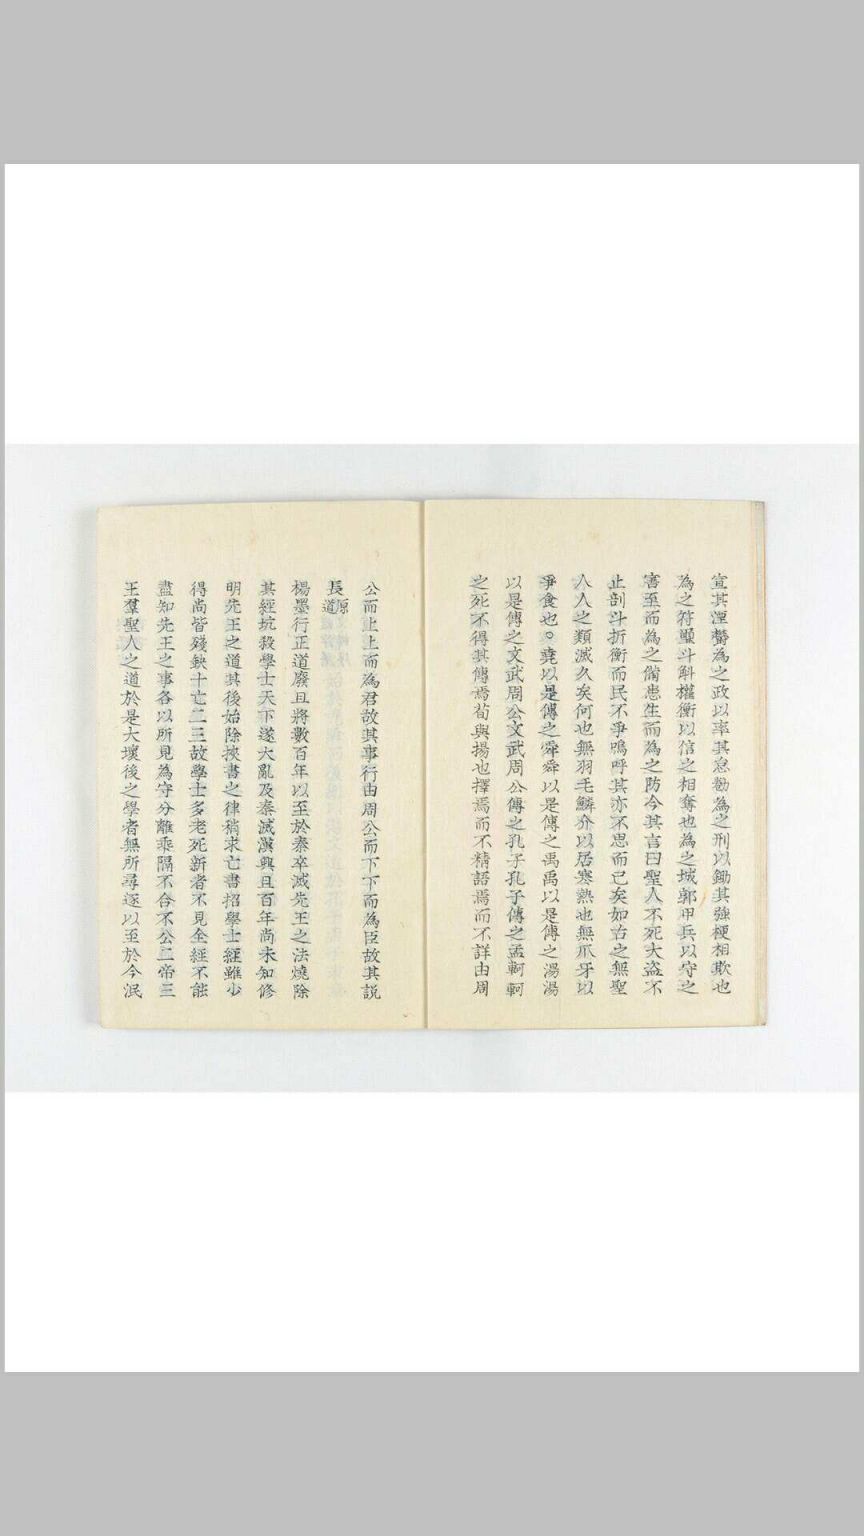 宣其湮欝為之政以率其怠勌為之刑以鋤其強梗相欺也
為之符璽斗斛權衡以信之相奪也為之城郭甲兵以守之
害至而為之備患生而為之防今其言曰聖人不死大盗不
止剖斗折衡而民不爭嗚呼其亦不思而已矣如古之無聖
人人之類滅久矣何也無羽毛鱗介以居寒熱也無爪牙以
爭食也。堯以是傳之舜舜以是傳之禹禹以是傳之湯湯
以是傳之文武周公文武周公傳之孔子孔子傳之孟軻軻
之死不得其傳焉荀與揚也擇焉而不精語焉而不詳由周
公而止上而為君故其事行由周公而下下而為臣故其説
長 原道
楊墨行正道廢且將數百年以至於秦卒滅先王之法燒除
其經坑殺學士天下遂大亂及秦滅漢興且百年尚未知修
明先王之道其後始除挾書之律稍求亡書招學士經雖少
得尚皆殘缺十亡二三故學士多老死新者不見全經不能
盡知先王之事各以所見為守分離乖隔不合不公二帝三
王羣聖人之道於是大壞後之學者無所尋逐以至於今泯